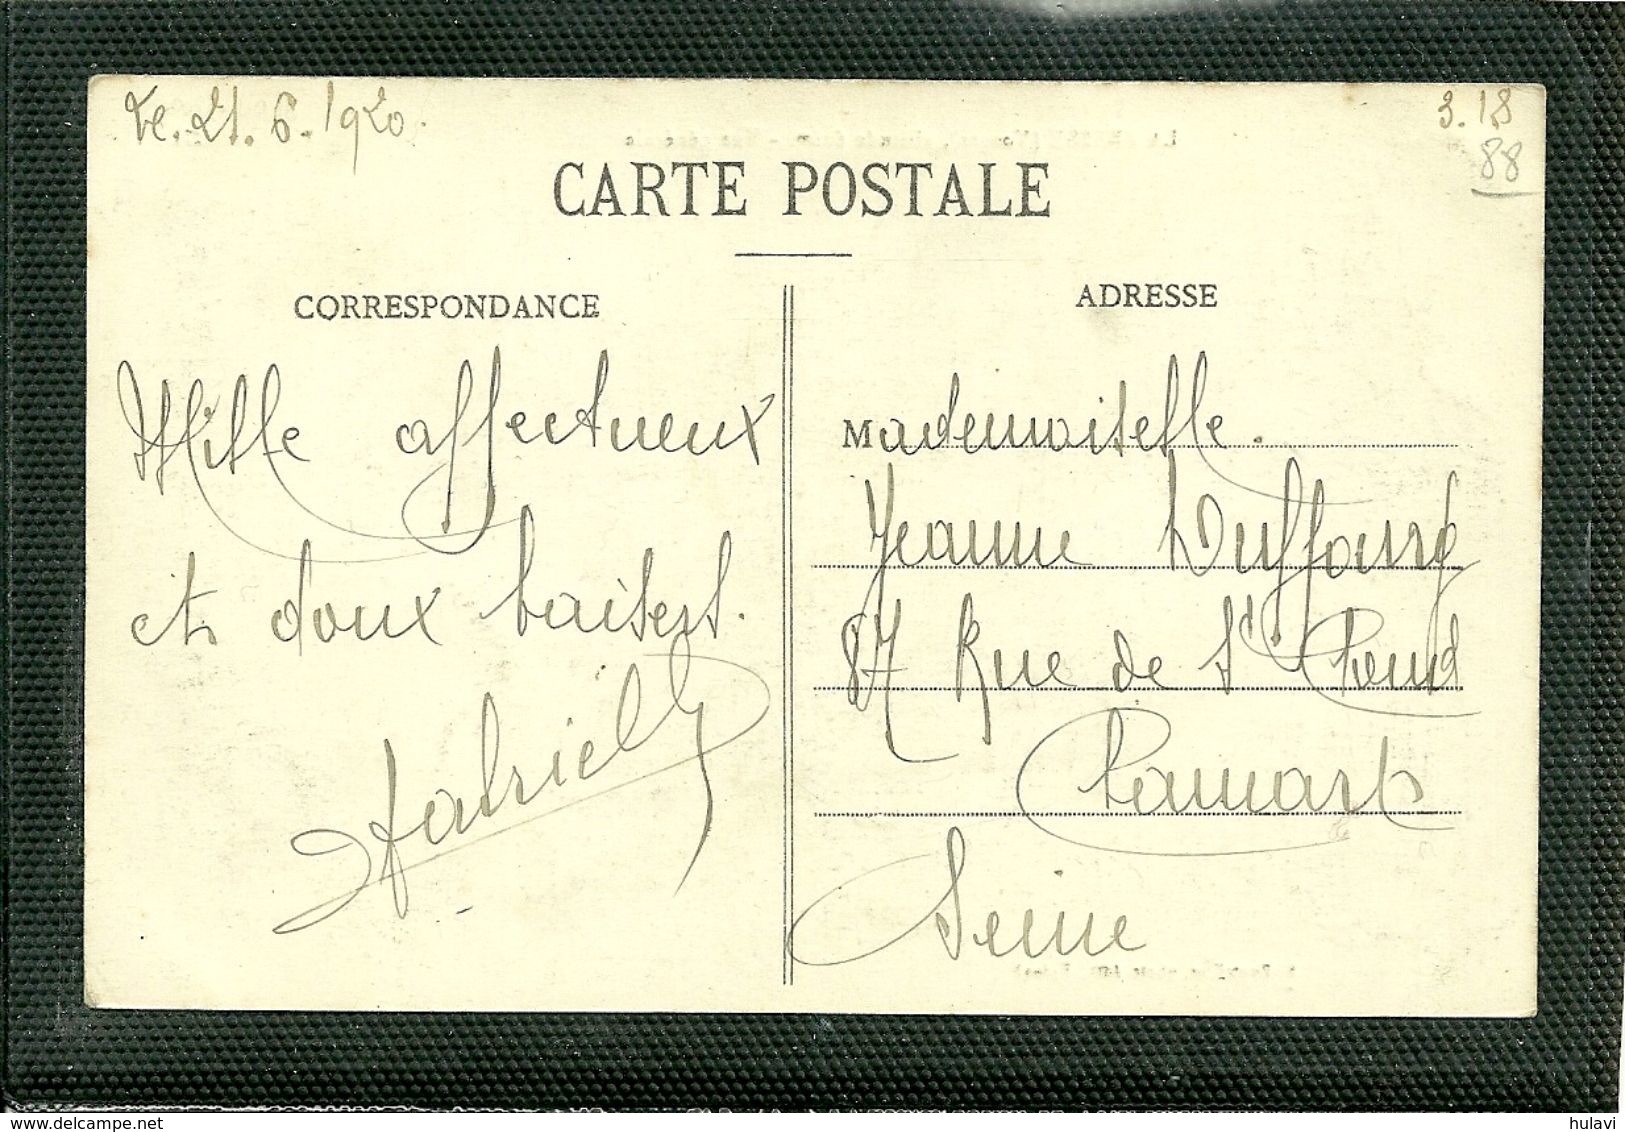 Le. 21. 6. 1920.
3. 18
88
CARTE POSTALE
CORRESPONDANCE
ADRESSE
Mille affectueux
et doux baisers.
Gabriel
Mademoiselle.
Jeanne Duffourg
87 Rue de St Cloud
Clamart
Seine
hulavi
delcampe.net